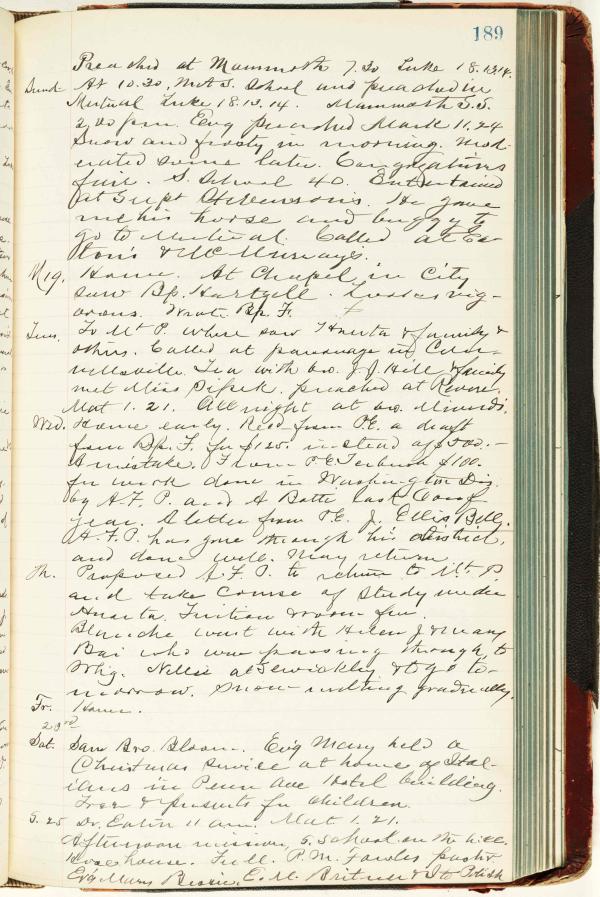 189
Preached at Mammoth 7.30 Luke 18.13.14.
Sund. At 10.30, Met S. School and preached in
Mutual Luke 18.13.14. Mammoth S.S.
2.00 p.m. Evg preached Mark 11.24
Snow and frosty in morning. Mod-
erated some later. Congregations
fair. S. School 40. Entertained
at Supt He gave
me his horse and buggy to
go to Mutual. Called at
& McMurray's.
M 19. Home. At Chapel in City
saw Bp. Hartzell. Looks as vig-
orous. Wrote Bp. F.
Tues. To Mt P. where saw Huerta & family &
others. Called at parsonage in Con-
nellsville. Tea with bro. J. J. Hill & family
met Miss preached at Revere
Mat 1.21. All night at bro.
Wed. Home early. Recd from P.E. a draft
from Bp. F. for $125. instead of 500.-
A mistake. From P.E. $100.
for work done in Washington Dis.
by A.F.P. and A last Conf
year. A letter from P.E. J. Ellis Bell.
A.F.P. has gone through his district,
and done well. May return
Th. Proposed A.F.P. to return to Mt. P.
and take Course of Study under
Huerta. Tuition & room free
Blanche went with Helen J & Mary
who was passing through to
Whg. Nellie at Sewickley & to go to-
morrow. Snow melting gradually.
Fr. Home.
23rd
Sat. Saw Bro. Bloom. Ev'g Mary held a
Christmas service at home of Ital-
ians in Penn Ave Hotel building.
Tree & presents for children.
S. 25 Dr. Eaton 11 am. Mat 1.21.
Afternoon mission, S. School on the hill.
Hose house. Full. P.M. Fowles pastor
Ev'g Mary E. M. Britner & I to Polish